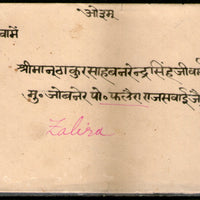 ओ३म्
वामें
श्रीमान ठाकुर साहब नरेन्द्र सिंह जीवा
मु० जोबनेर पो० फलेरा राज सवाई जै
Zalira